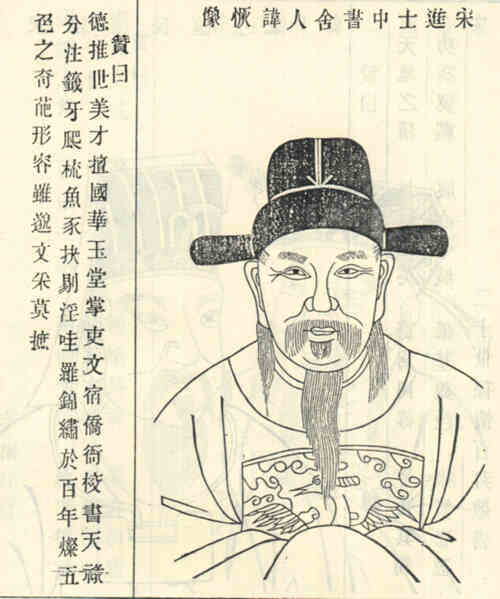 宋進士中書舍人諱恢像
贊曰
德推世美才擅國華玉堂掌吏文宿僑衙校書天祿
分注籤牙爬梳魚豕抉剔淫哇羅錦繡於百年燦五
色之奇葩形容雖邈文采莫摭